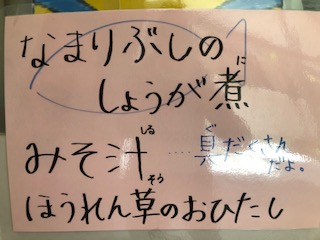 なまりぶしの
しょうが煮
に
みそ汁
しる
‥‥具だくさん
ぐ
だよ。
ほうれん草のおひたし
そう